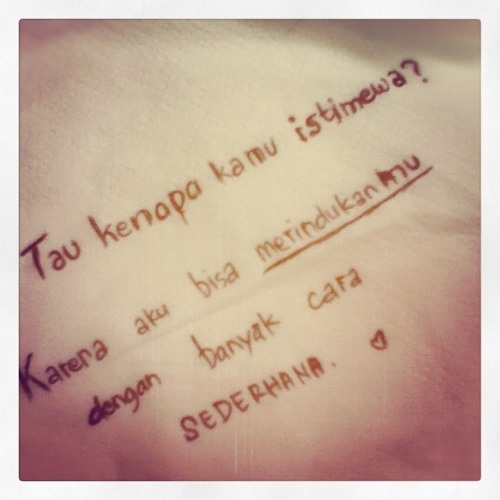 Tau kenapa kamu istimewa?
Karena aku bisa merindukanmu
dengan banyak cara
SEDERHANA.